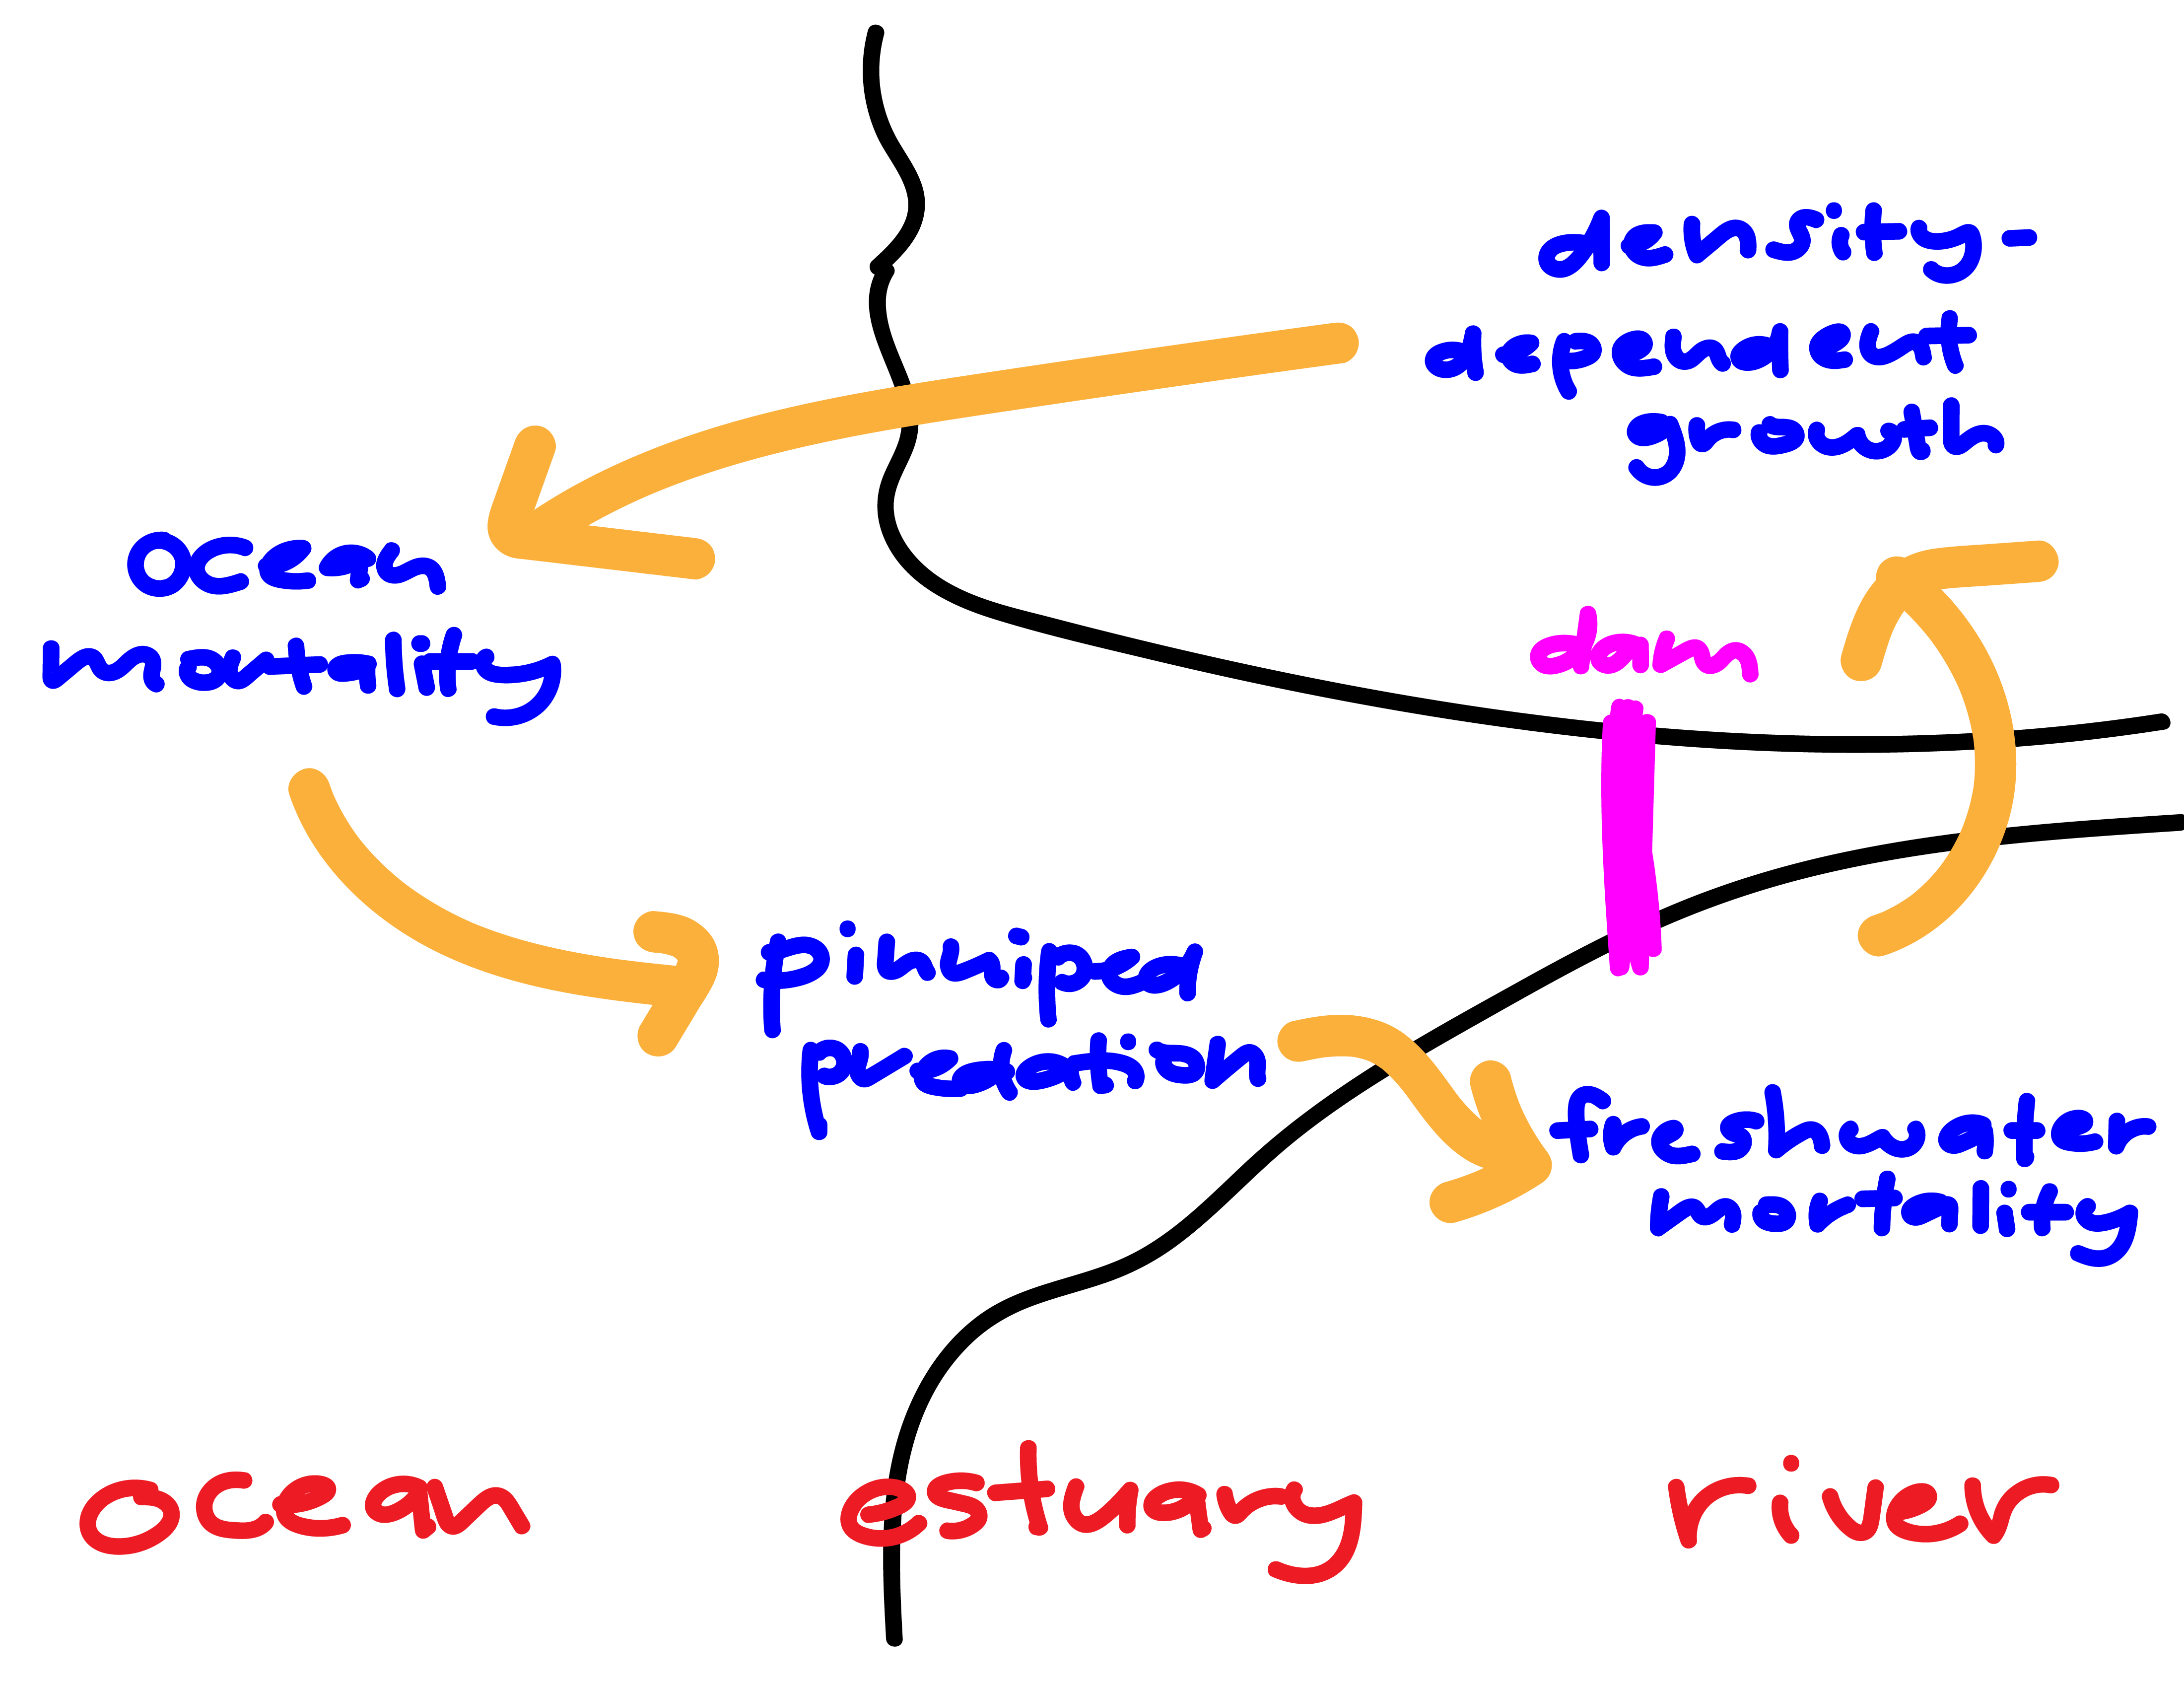 density-
dependent
growth
Ocean
mortality
dam
pinniped
predation
freshwater
mortality
ocean
estuary
river